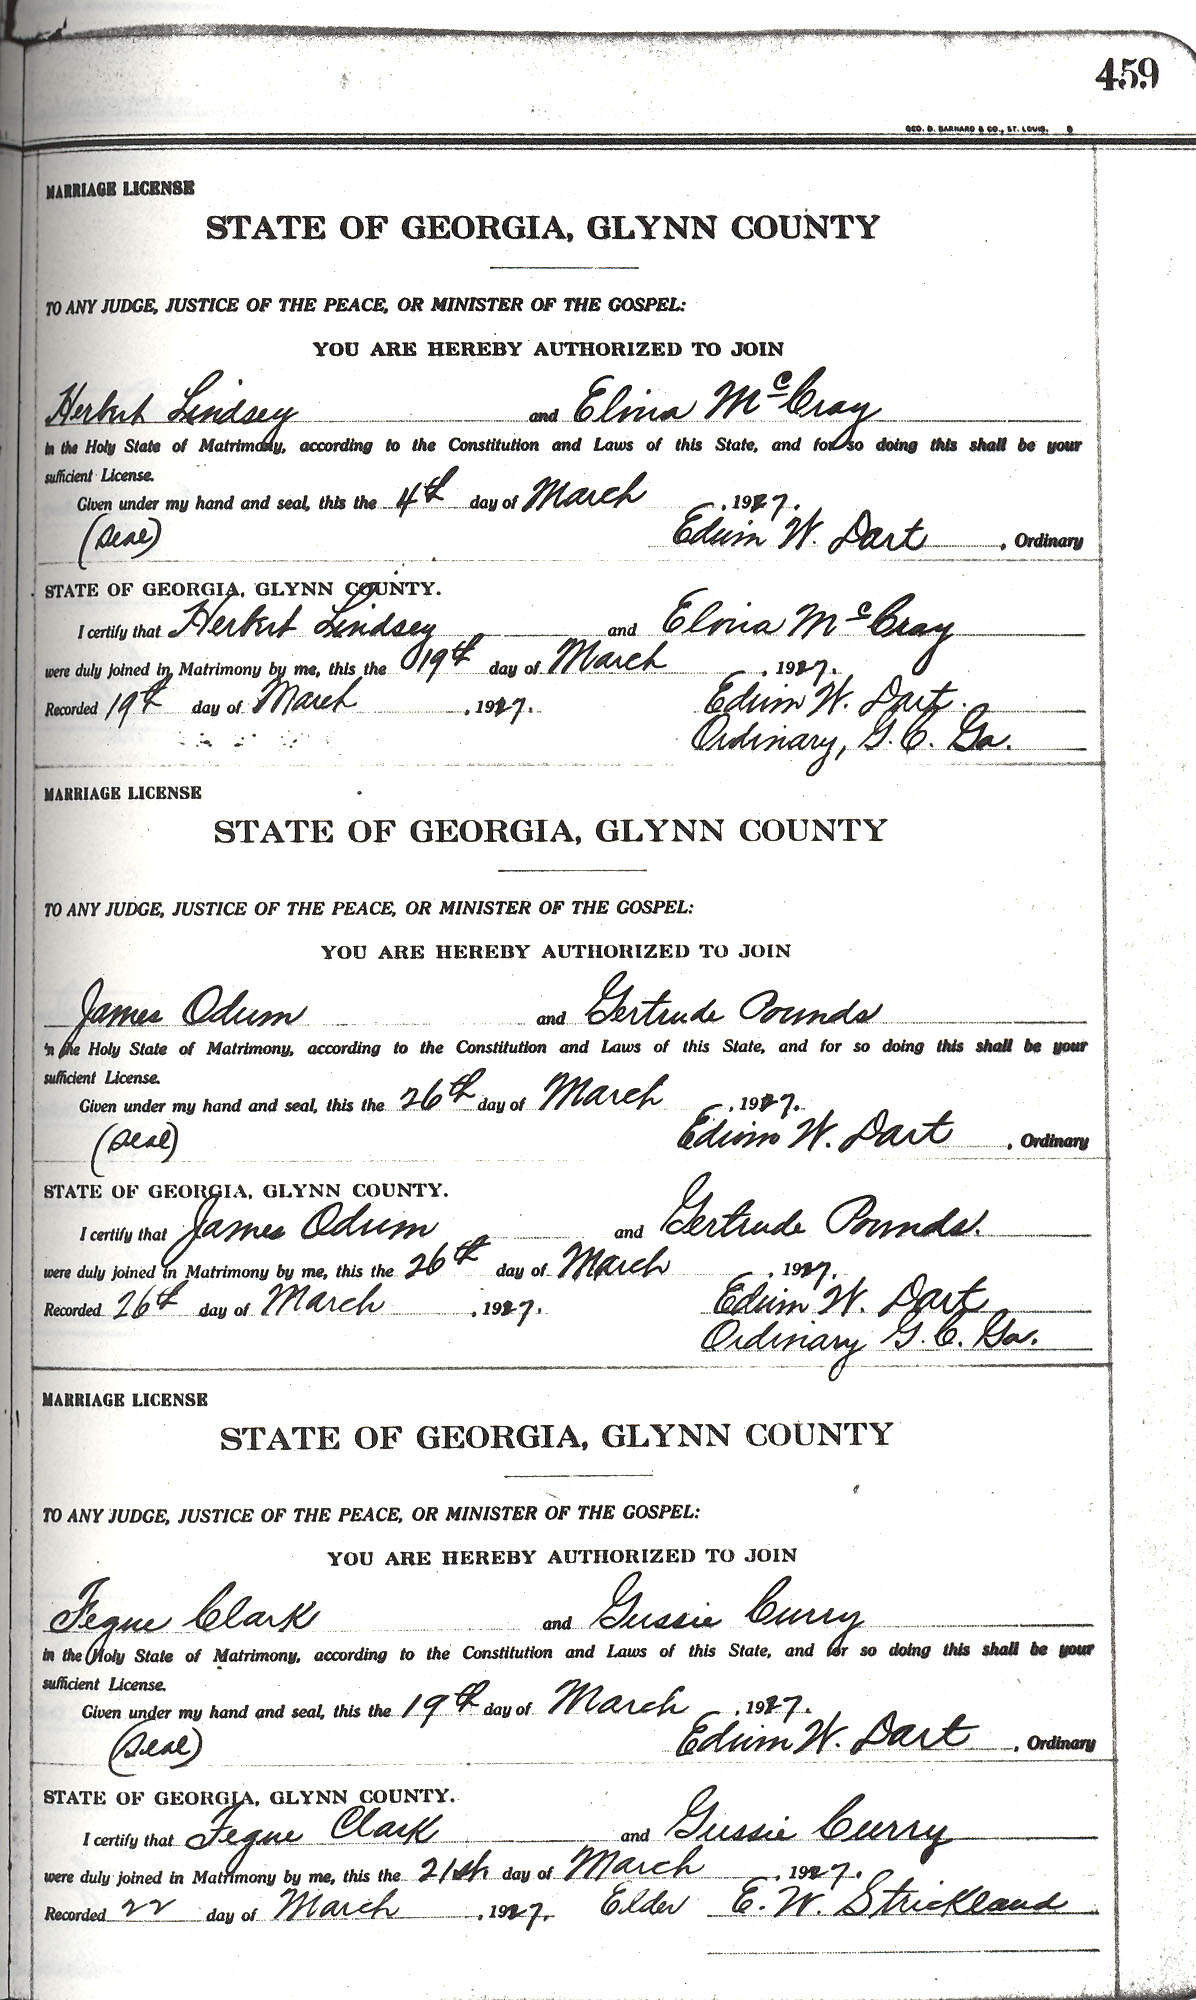 459
GEO. D. BARNARD & CO., ST. LOUIS.
MARRIAGE LICENSE
STATE OF GEORGIA, GLYNN COUNTY
TO ANY JUDGE, JUSTICE OF THE PEACE, OR MINISTER OF THE GOSPEL:
YOU ARE HEREBY AUTHORIZED TO JOIN
Herbert Lindsey and Elvia McCray
in the Holy State of Matrimony, according to the Constitution and Laws of this State, and for so doing this shall be your
sufficient License.
Given under my hand and seal, this the 4th day of March, 1927.
(Seal) Edwin W. Dart, Ordinary
STATE OF GEORGIA, GLYNN COUNTY.
I certify that Herbert Lindsey and Elvia McCray
were duly joined in Matrimony by me, this the 19th day of March, 1927.
Recorded 19th day of March, 1927. Edwin W. Dart.
Ordinary, G. C. Ga.
MARRIAGE LICENSE
STATE OF GEORGIA, GLYNN COUNTY
TO ANY JUDGE, JUSTICE OF THE PEACE, OR MINISTER OF THE GOSPEL:
YOU ARE HEREBY AUTHORIZED TO JOIN
James Odum and Gertrude Pounds
in the Holy State of Matrimony, according to the Constitution and Laws of this State, and for so doing this shall be your
sufficient License.
Given under my hand and seal, this the 26th day of March, 1927.
(Seal) Edwin W. Dart, Ordinary
STATE OF GEORGIA, GLYNN COUNTY.
I certify that James Odum and Gertrude Pounds.
were duly joined in Matrimony by me, this the 26th day of March, 1927.
Recorded 26th day of March, 1927. Edwin W. Dart
Ordinary G. C. Ga.
MARRIAGE LICENSE
STATE OF GEORGIA, GLYNN COUNTY
TO ANY JUDGE, JUSTICE OF THE PEACE, OR MINISTER OF THE GOSPEL:
YOU ARE HEREBY AUTHORIZED TO JOIN
Fegue Clark and Gussie Curry
in the Holy State of Matrimony, according to the Constitution and Laws of this State, and for so doing this shall be your
sufficient License.
Given under my hand and seal, this the 19th day of March, 1927.
(Seal) Edwin W. Dart, Ordinary
STATE OF GEORGIA, GLYNN COUNTY.
I certify that Fegue Clark and Gussie Curry
were duly joined in Matrimony by me, this the 21st day of March, 1927.
Recorded 22 day of March, 1927. Elder E. W. Strickland